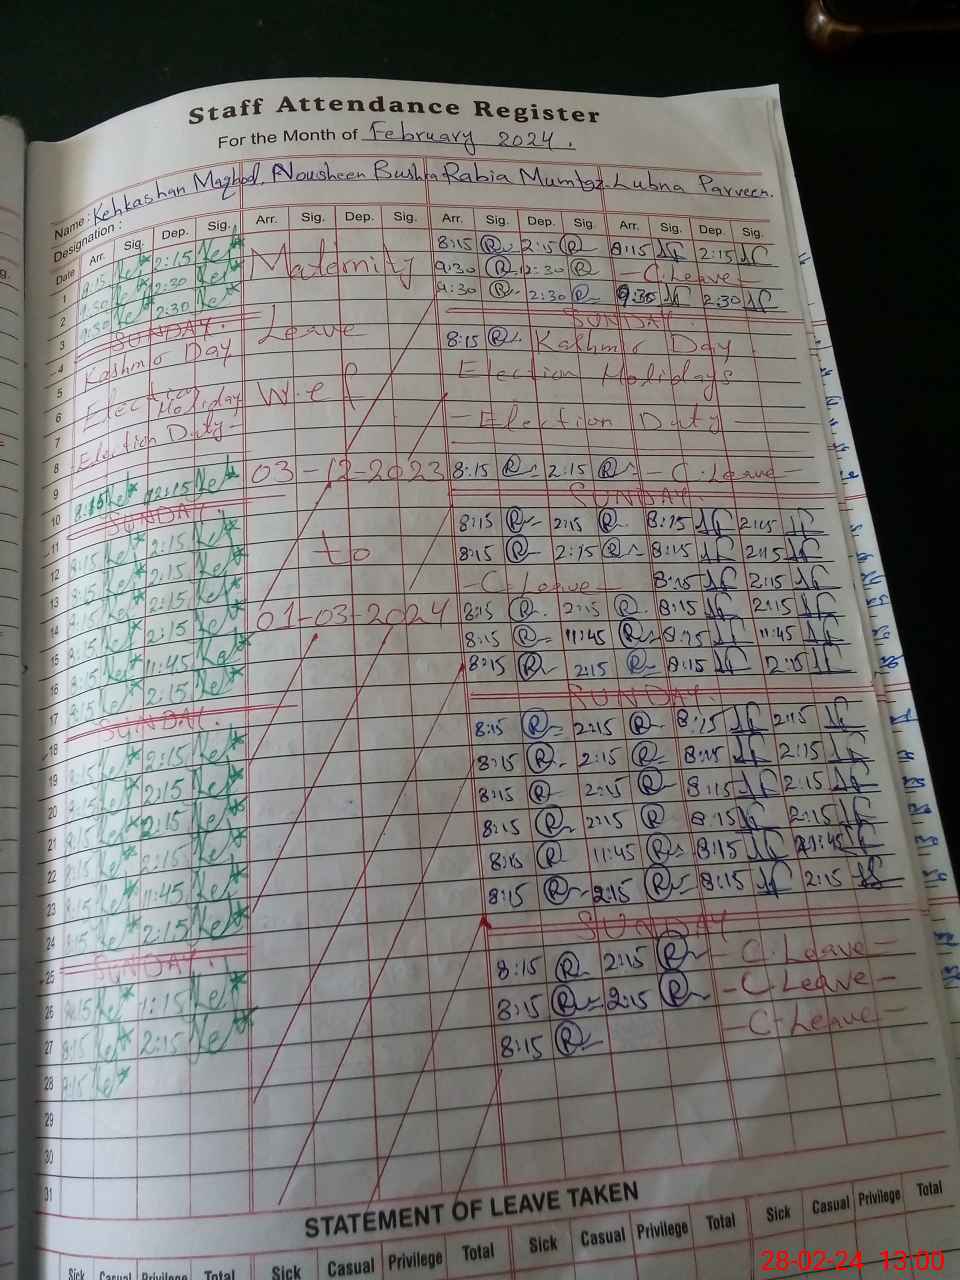 Staff Attendance Register
For the Month of February 2024.
Name: Kehkashan Maqbool, Nousheen Bushra Rabia Mumtaz. Lubna Parveen.
Designation:
Date Arr. Sig. Dep. Sig. Arr. Sig. Dep. Sig. Arr. Sig. Dep. Sig. Arr. Sig. Dep. Sig.
1 8:15 2:15 Maternity 8:15 2:15 8:15 2:15
2 9:30 12:30 9:30 12:30 - C. Leave -
3 9:30 2:30 Leave 9:30 2:30 9:30 2:30
4 SUNDAY. SUNDAY.
5 Kashmir Day 8:15 Kashmir Day
6 Election Holiday w.e.f Election Holidays
7
8 Election Duty - - Election Duty -
9 8:15 12:15 03-12-2023 8:15 2:15 - C. Leave -
10
11 SUNDAY SUNDAY.
12 8:15 2:15 8:15 2:15 8:15 2:15
13 8:15 2:15 to 8:15 2:15 8:15 2:15
14 8:15 2:15 - C. Leave - 8:15 2:15
15 8:15 2:15 01-03-2024 8:15 2:15 8:15 2:15
16 8:15 11:45 8:15 11:45 8:15 11:45
17 8:15 2:15 8:15 2:15 8:15 2:15
18 SUNDAY. SUNDAY.
19 8:15 2:15 8:15 2:15 8:15 2:15
20 8:15 2:15 8:15 2:15 8:15 2:15
21 8:15 2:15 8:15 2:15 8:15 2:15
22 8:15 2:15 8:15 2:15 8:15 2:15
23 8:15 11:45 8:15 11:45 8:15 11:45
24 8:15 2:15 8:15 2:15 8:15 2:15
25 SUNDAY. SUNDAY
26 8:15 1:15 8:15 2:15 - C. Leave -
27 8:15 2:15 8:15 2:15 - C. Leave -
28 8:15 8:15 - C. Leave -
29
30
31
STATEMENT OF LEAVE TAKEN
Sick Casual Privilege Total Sick Casual Privilege Total Sick Casual Privilege Total Sick Casual Privilege Total
28-02-24 13:00